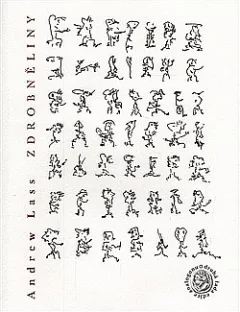 Andrew Lass ZDROBNĚLINY